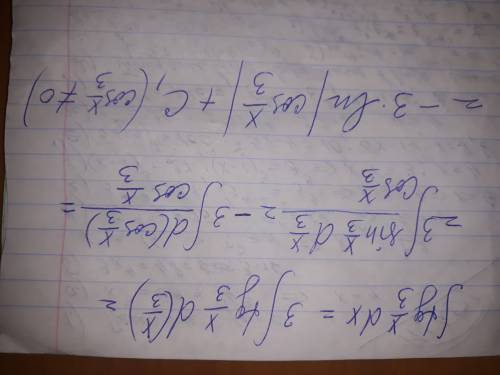 ∫ tg x/3 dx = 3 ∫ tg x/3 d(x/3) =
= 3 ∫ (sin x/3 d x/3)/(cos x/3) = -3 ∫ (d(cos x/3))/(cos x/3) =
= -3 · ln |cos x/3| + C, (cos x/3 ≠ 0)